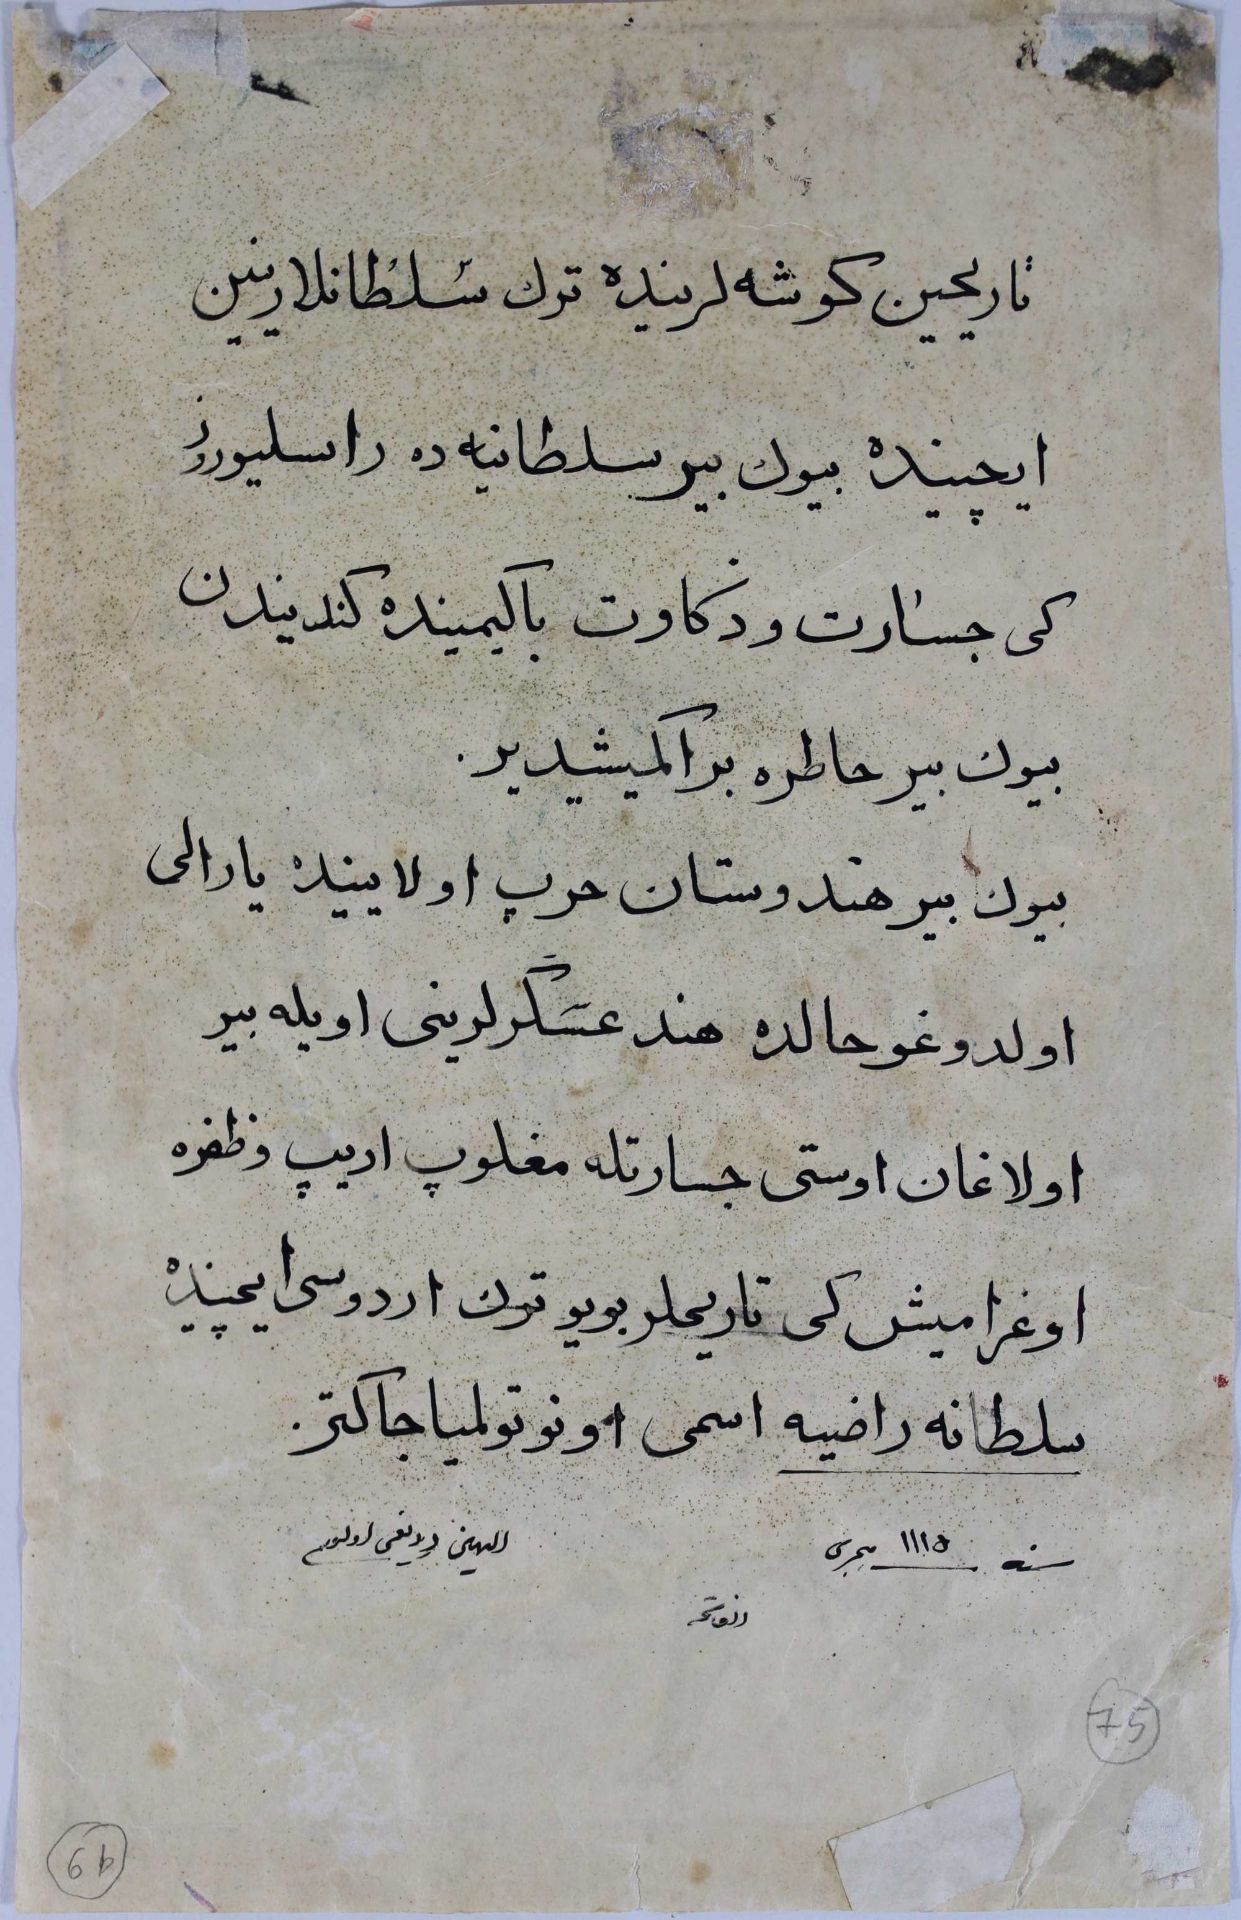 تاریحین کوشه لرینده ترك سلطانلارینین
ایچینده بیوك بیر سلطانیه ده راسلیورز
کی جسارت و ذکاوت باکیمینده کندیندن
بیوك بیر حاطره براکمیشدیر.
بیوك بیر هندوستان حرپ اولاییندە یارالی
اولدوغو حالده هند عسگرلرینی اویله بیر
اولاغان اوستی جسارتله مغلوپ ادیپ وظفره
اوغرامیش کی تاریحلر بویو تورك اردوسی ایچینده
سلطانه راضیه اسمی اونوتولمیاجاکتر.
سنه ١١١٥ هجری
75
6b